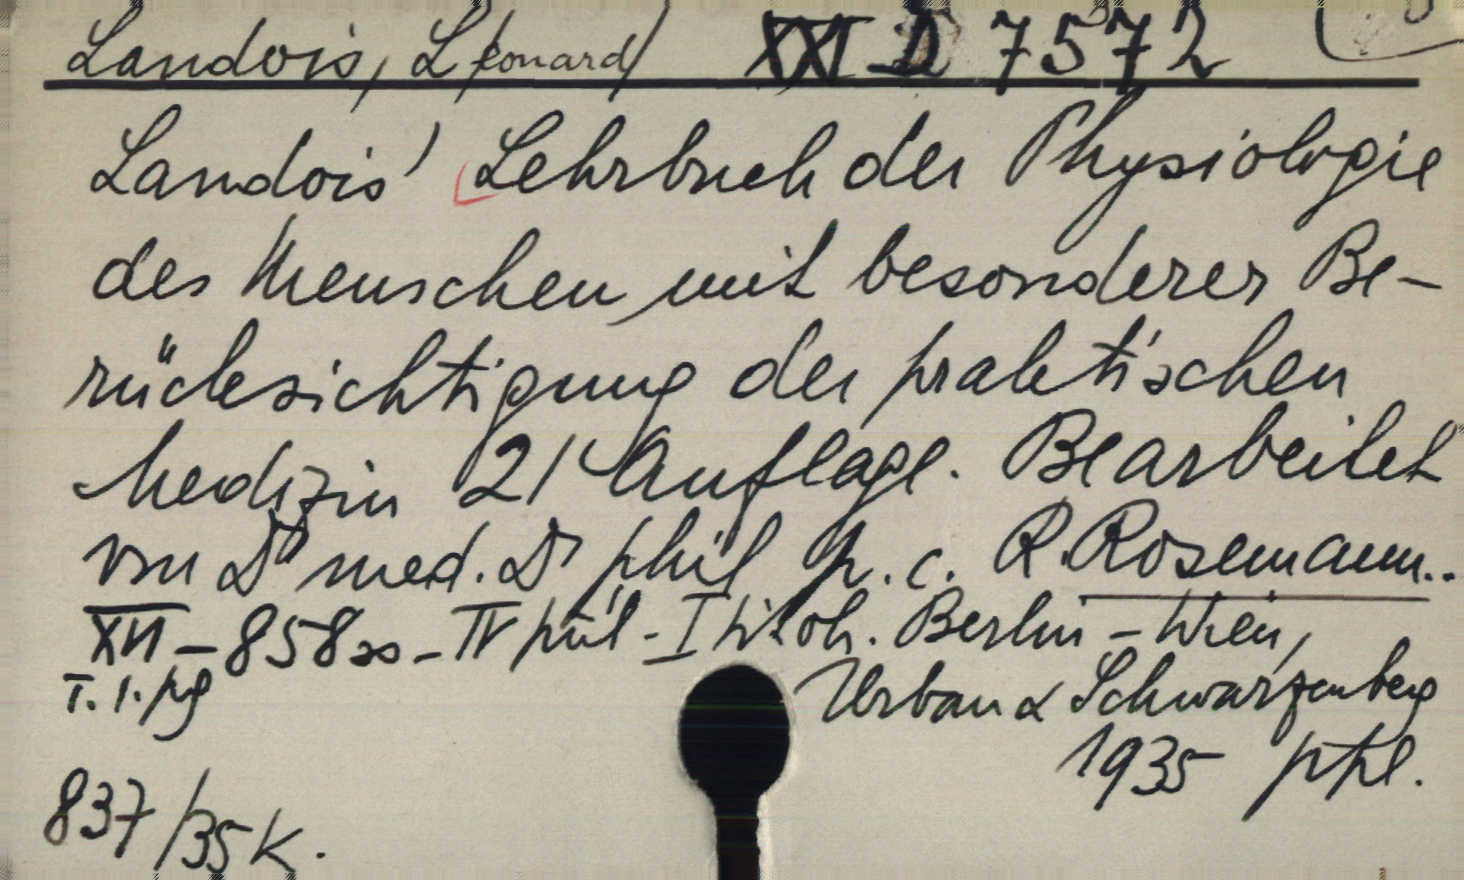 Landois, L(eonard) XXI D 7572
Landois' Lehrbuch der Physiologie
des Menschen, mit besonderer Be-
rücksichtigung der praktischen
Medizin 21 Auflage. Bearbeitet
von Dr med. Dr phil h. c. R. Rosemann..
XII - 858 - IV Berlin - Wien,
T. 1. pg Urban & Schwarzenberg
1935 ptpl.
837/35 K.